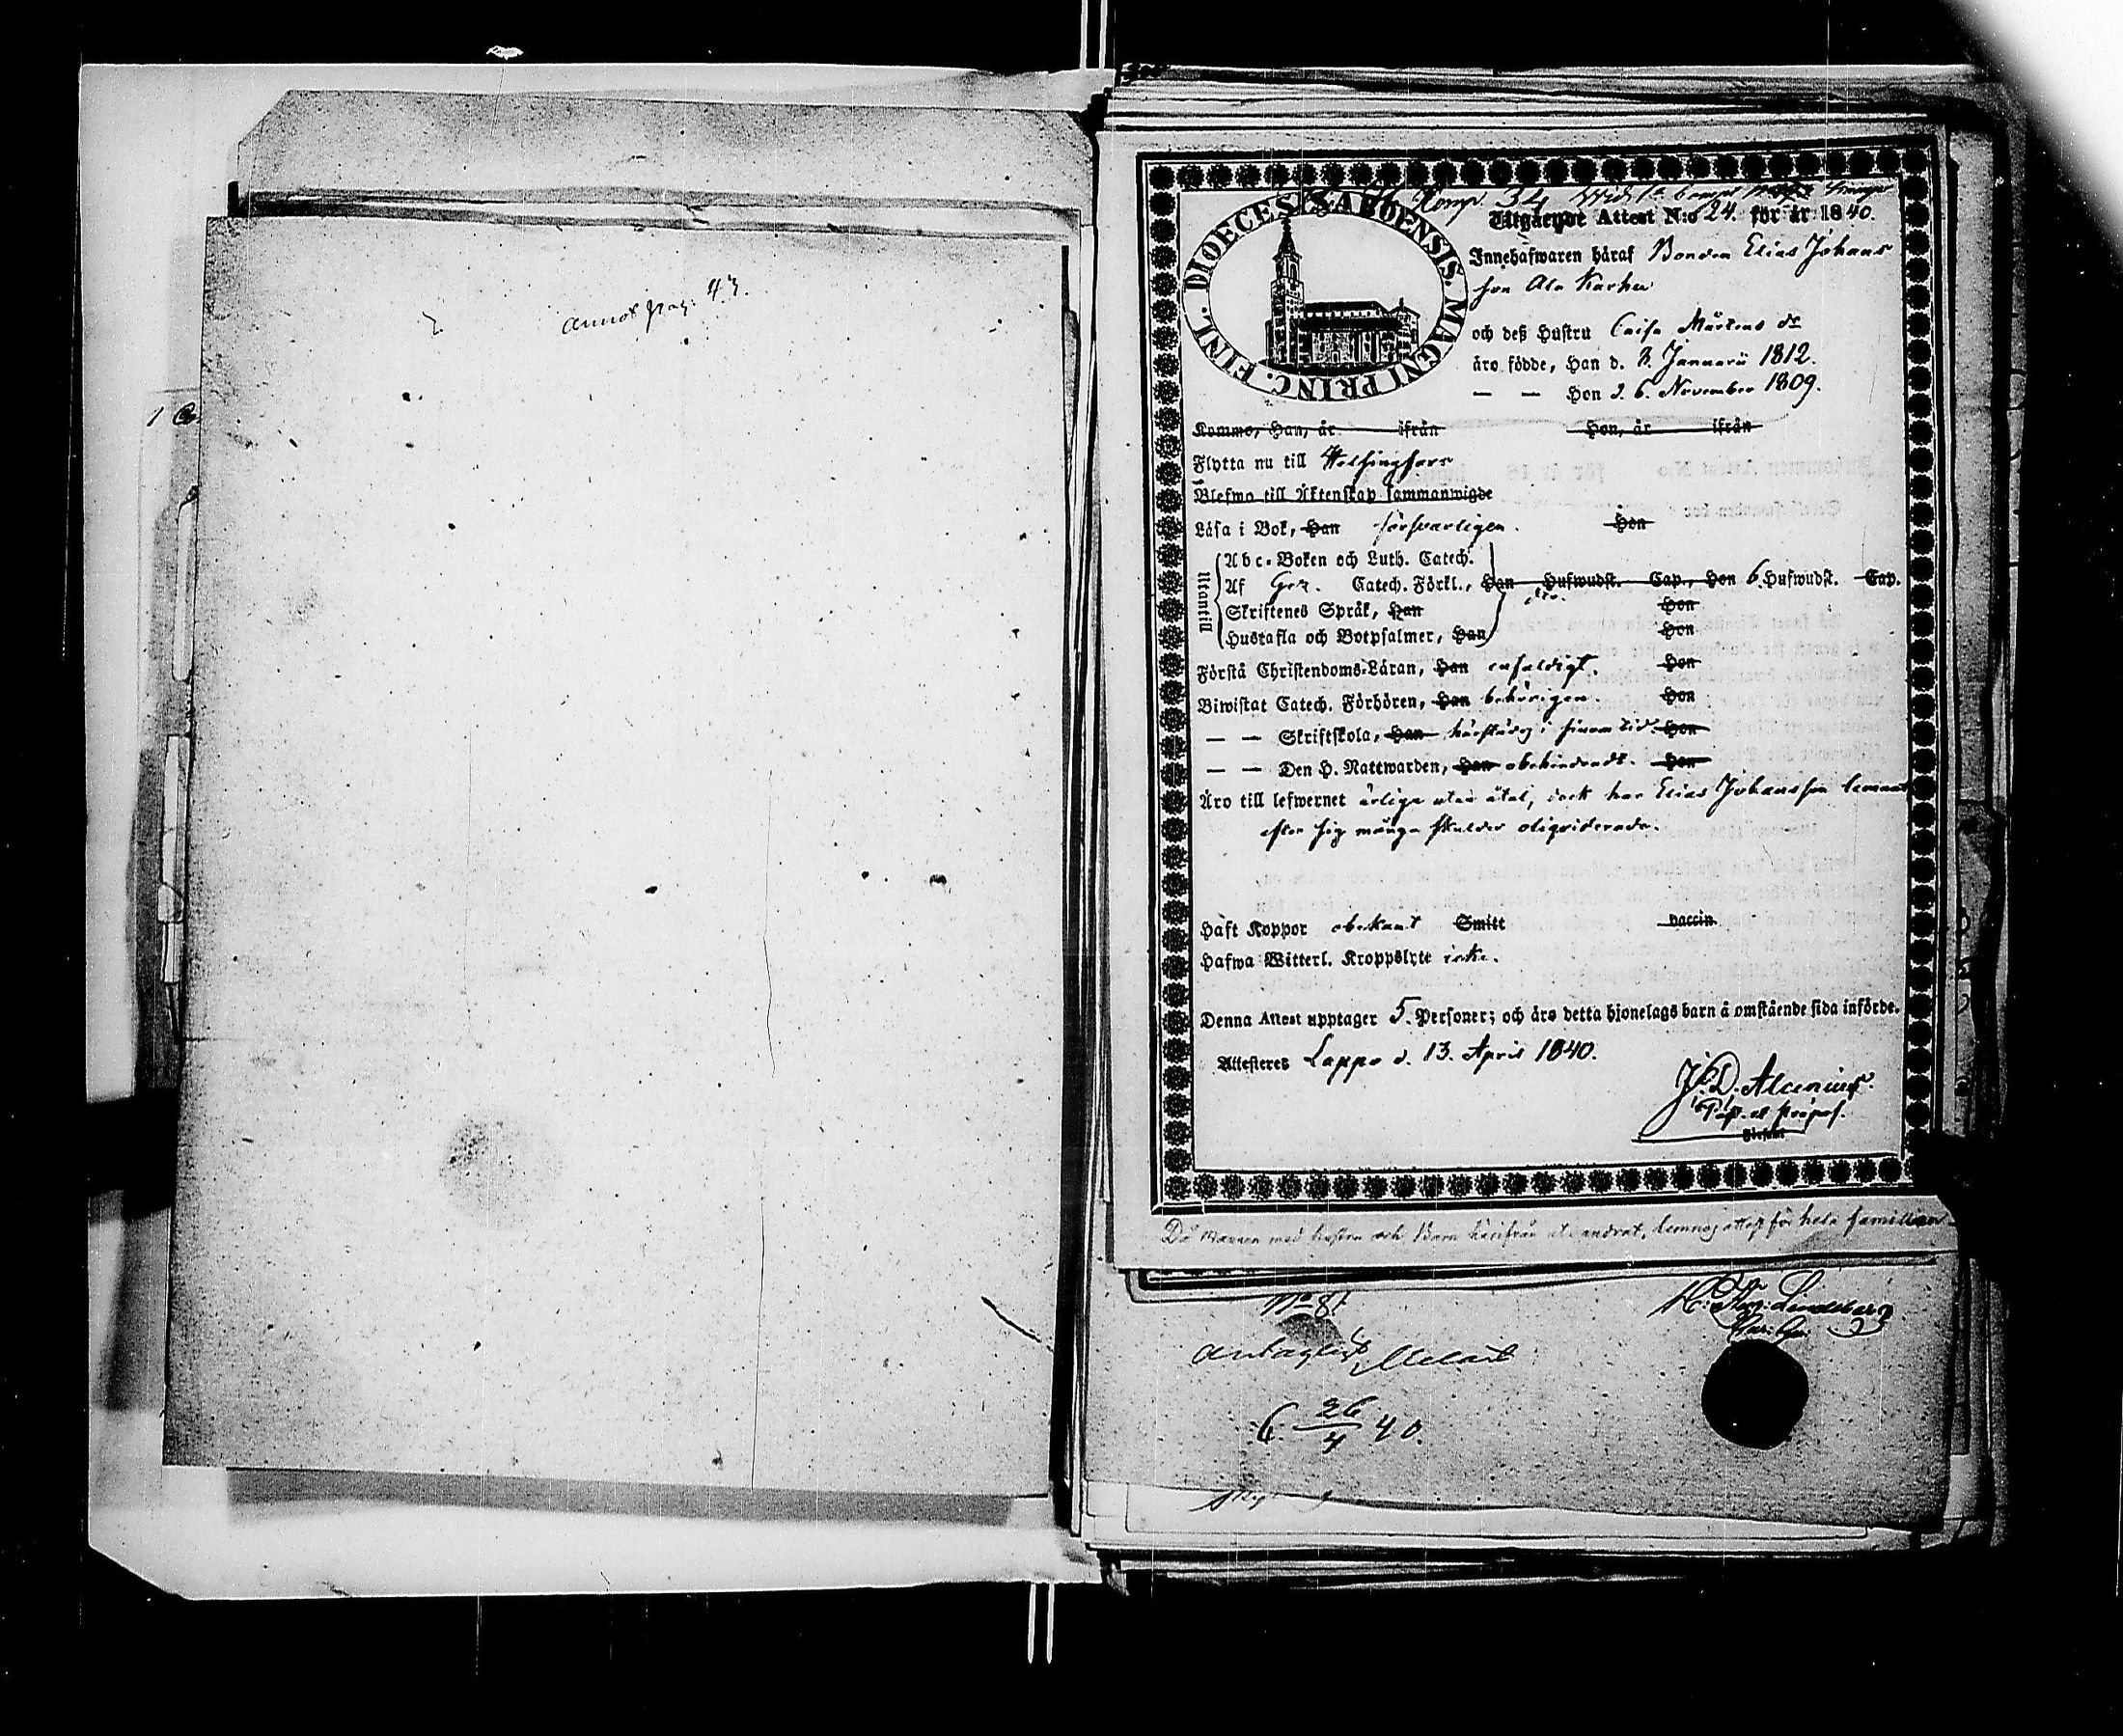 Annot pag: 43.
Komp. 34
DIOECESIS ABOENSIS. MAGNI PRINC. FINL.
Utgående Attest N:o 24. för år 1840.
Innehafwaren häraf Bonden Elias Johans
son Ala Karhu
och deß Hustru Caisa Mårtens dr
äro födde, Han d. 8. Januarii 1812.
— — Hon d. 6. November 1809.
Kommo, Han, år ifrån Hon, år ifrån
Flytta nu till Helsingfors
Blefwo till Äktenskap sammanwigde
Läsa i Bok, Han försvarligen. Hon
Utantill
Abc-Boken och Luth. Catech.
Af Catech. Förkl., Han Hufwudst. Cap., Hon 6. Hufwudst. Cap.
Skriftenes Språk, Han Hon
Hustafla och Botpsalmer, Han Hon
Förstå Christendoms-Läran, Han enfaldigt. Hon
Biwistat Catech. Förhören, Han behörigen. Hon
— — Skriftskola, Han i sinom tid. Hon
— — Den H. Nattwarden, Han obehindradt. Hon
Äro till lefwernet ärliga utan åtal, dock har Elias Johansson lemnat
efter sig många skulder oliqviderade.
Haft Koppor obekant Smitt vaccin
Hafwa Witterl. Kroppslyte icke.
Denna Attest upptager 5. Personer; och äro detta hjonelags barn å omstående sida införde.
Attesteras Lappo d. 13. April 1840.
J. D. Alcenius.
Past. et Præpos.
Då Mannen med hustru och Barn härifrån utvandrat, lemnas attest för hela familien
No 81.
6. 26/4 40.